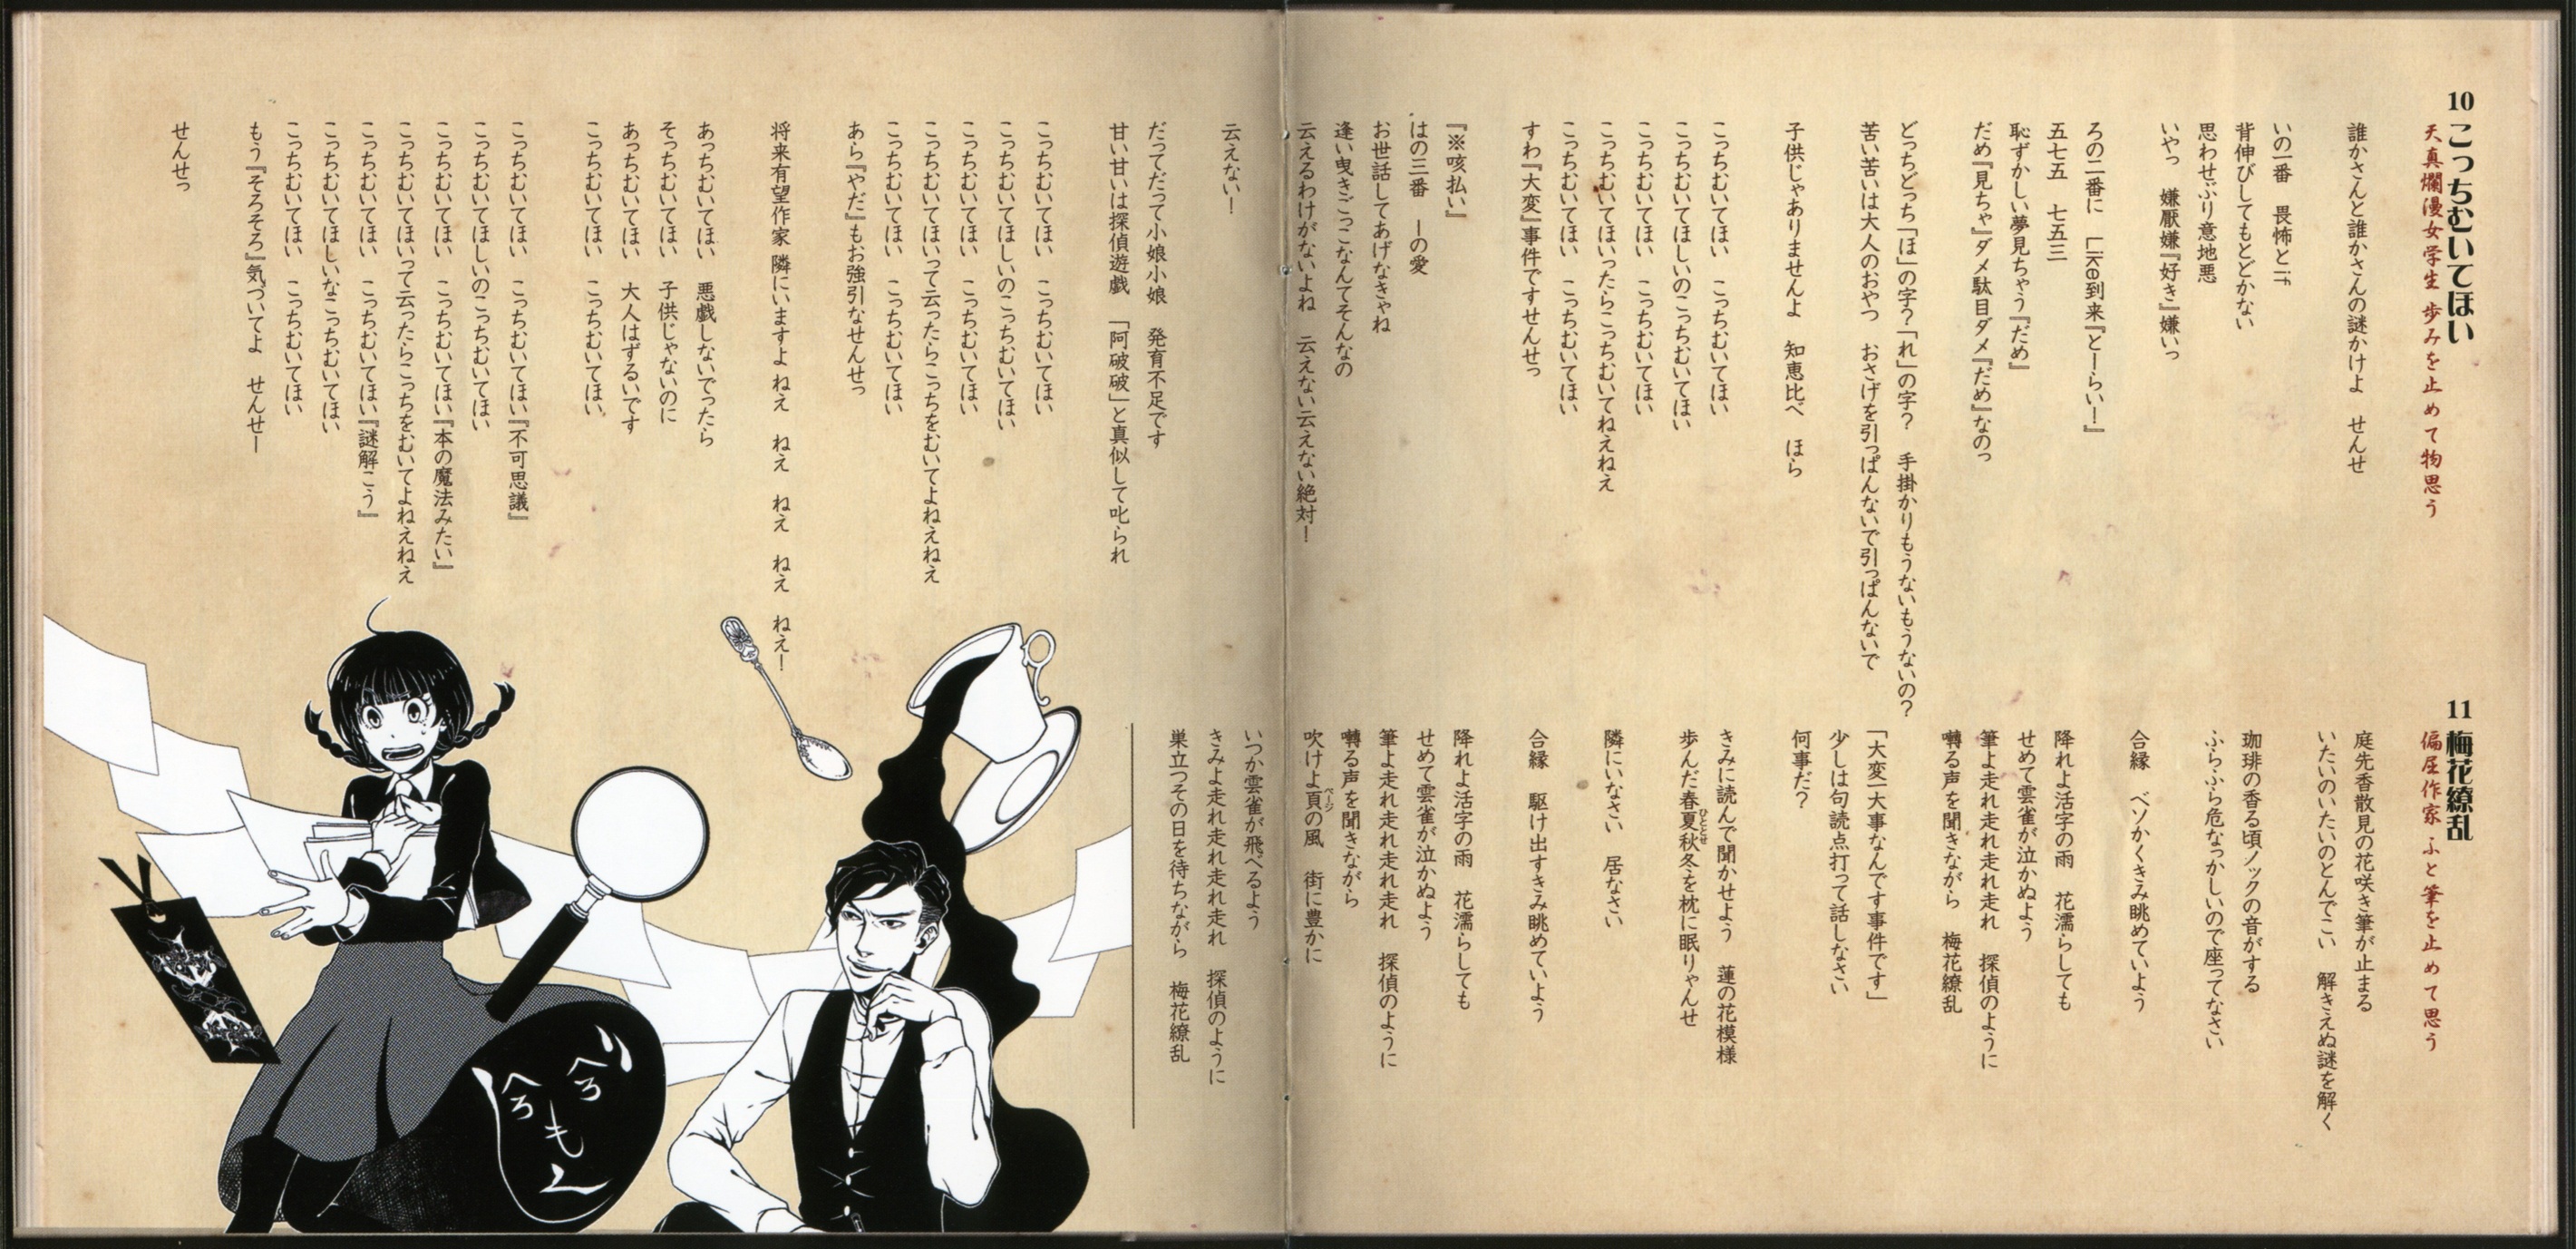 10 こっちむいてほい
天真爛漫女学生 歩みを止めて物思う
誰かさんと誰かさんの謎かけよ　せんせ
いの一番　畏怖とif
背伸びしてもとどかない
思わせぶり意地悪
いやっ　嫌厭嫌『好き』嫌いっ
ろの二番に　Like到来『とーらい！』
五七五　七五三
恥ずかしい夢見ちゃう『だめ』
だめ『見ちゃ』ダメ駄目ダメ『だめ』なのっ
どっちどっち「ほ」の字？「れ」の字？　手掛かりもうないもうないの？
苦い苦いは大人のおやつ　おさげを引っぱんないで引っぱんないで
子供じゃありませんよ　知恵比べ　ほら
こっちむいてほい　こっちむいてほい
こっちむいてほしいのこっちむいてほい
こっちむいてほい　こっちむいてほい
こっちむいてほいったらこっちむいてねえねえ
こっちむいてほい　こっちむいてほい
すわ『大変』事件ですせんせっ
『※咳払い』
はの三番　Iの愛
お世話してあげなきゃね
逢い曳きごっこなんてそんなの
云えるわけがないよね　云えない云えない絶対！
云えない！
だってだって小娘小娘　発育不足です
甘い甘いは探偵遊戯　「阿破破」と真似して叱られ
こっちむいてほい　こっちむいてほい
こっちむいてほしいのこっちむいてほい
こっちむいてほい　こっちむいてほい
こっちむいてほいって云ったらこっちをむいてよねえねえ
こっちむいてほい　こっちむいてほい
あら『やだ』もお強引なせんせっ
将来有望作家 隣にいますよ ねえ　ねえ　ねえ　ねえ　ねえ！
あっちむいてほい　悪戯しないでったら
そっちむいてほい　子供じゃないのに
あっちむいてほい　大人はずるいです
こっちむいてほい　こっちむいてほい
こっちむいてほい　こっちむいてほい『不可思議』
こっちむいてほしいのこっちむいてほい
こっちむいてほい　こっちむいてほい『本の魔法みたい』
こっちむいてほいって云ったらこっちをむいてよねえねえ
こっちむいてほい　こっちむいてほい『謎解こう』
こっちむいてほしいなこっちむいてほい
こっちむいてほい　こっちむいてほい
もう『そろそろ』気づいてよ　せんせー
せんせっ
11 梅花繚乱
偏屈作家 ふと筆を止めて思う
庭先香散見の花咲き筆が止まる
いたいのいたいのとんでこい　解きえぬ謎を解く
珈琲の香る頃ノックの音がする
ふらふら危なっかしいので座ってなさい
合縁　ベソかくきみ眺めていよう
降れよ活字の雨　花濡らしても
せめて雲雀が泣かぬよう
筆よ走れ走れ走れ走れ　探偵のように
囀る声を聞きながら　梅花繚乱
「大変一大事なんです事件です」
少しは句読点打って話しなさい
何事だ？
きみに読んで聞かせよう　蓮の花模様
歩んだ春夏秋冬を枕に眠りゃんせ
ひととせ
隣にいなさい　居なさい
合縁　駆け出すきみ眺めていよう
降れよ活字の雨　花濡らしても
せめて雲雀が泣かぬよう
筆よ走れ走れ走れ走れ　探偵のように
囀る声を聞きながら
吹けよ頁の風　街に豊かに
ページ
いつか雲雀が飛べるよう
きみよ走れ走れ走れ走れ　探偵のように
巣立つその日を待ちながら　梅花繚乱
へろへろもへ